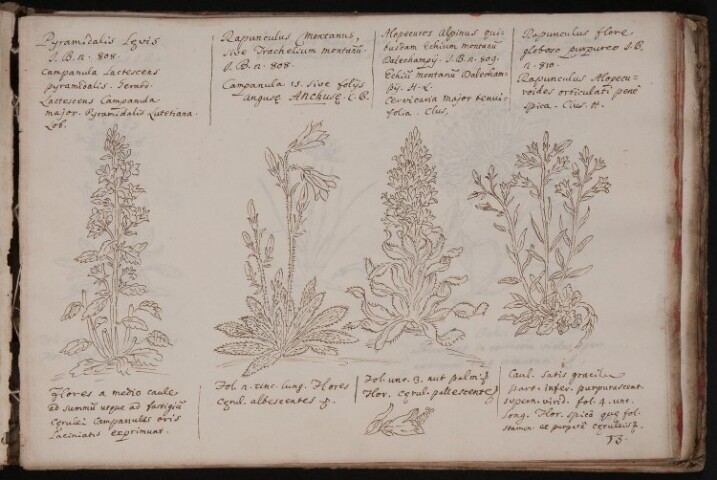 Pyramidalis Levis
J. B. n. 808.
Campanula Lactescens
pyramidalis. Gerard.
Lactescens Campanula
major. Pyramidalis Lutetiana.
Lob.
Rapunculus Montanus,
sive Trachelium montanū.
J. B. n. 808.
Campanula 15. sive folijs
Anchusę C. B.
Alopecuros Alpinus qui-
busdam Echium montanū
Dalechampij. J. B. n. 809.
Echiū montanū Dalecham-
pij. H. L.
Cervicaria major tenui-
folia. Clus.
Rapunculus flore
globoso purpureo J. B.
n. 810.
Rapunculus Alopecu-
roides orticulati penè
spica. Clus. H.
Flores a medio caule
ad summū usque ad fastigiū
cęrulei Campanulas oris
laciniatis exprimunt.
Fol. n. unc. lung. Flores
cęrul. albescentes
Fol. unc. 3. aut palm.
Flor. cęrul. pallescente
Caul. satis gracil
part. infer. purpurascent.
supern. virid. fol. 4. unc.
long. Flor. spicā que fol.
stamin. ex purpurā